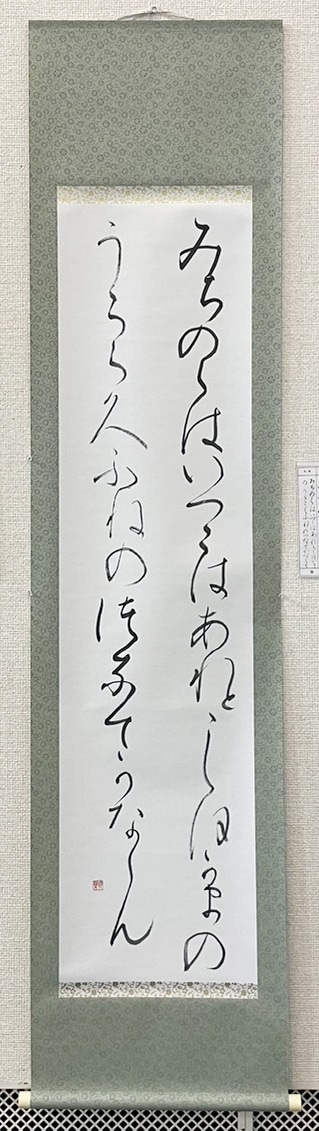 みちのくはいつくはあれとしほかまの
うらこく久ふねの津なてかなしん